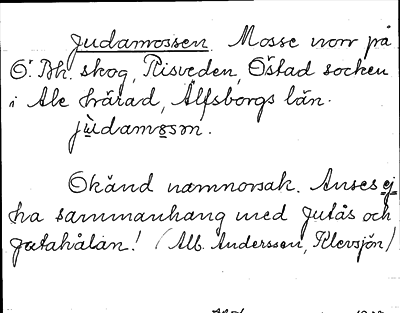 Judamossen Mosse norr på
Ö. Bh. skog, Risveden, Östad socken
i Ale härad, Älfsborgs län.
jùdamåsm.
Okänd namnorsak. Anses ej
ha sammanhang med Jutås och
Jutahålan! (Alb. Andersson, Klevsjön)